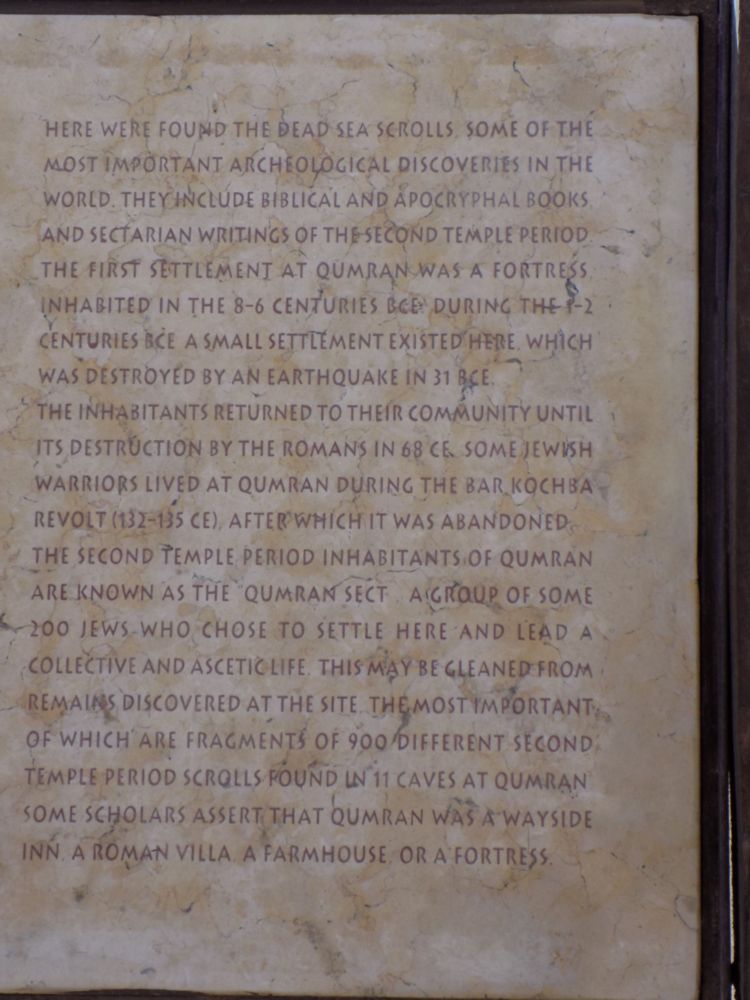 HERE WERE FOUND THE DEAD SEA SCROLLS. SOME OF THE
MOST IMPORTANT ARCHEOLOGICAL DISCOVERIES IN THE
WORLD. THEY INCLUDE BIBLICAL AND APOCRYPHAL BOOKS
AND SECTARIAN WRITINGS OF THE SECOND TEMPLE PERIOD.
THE FIRST SETTLEMENT AT QUMRAN WAS A FORTRESS,
INHABITED IN THE 8-6 CENTURIES BCE. DURING THE 1-2
CENTURIES BCE A SMALL SETTLEMENT EXISTED HERE, WHICH
WAS DESTROYED BY AN EARTHQUAKE IN 31 BCE.
THE INHABITANTS RETURNED TO THEIR COMMUNITY UNTIL
ITS DESTRUCTION BY THE ROMANS IN 68 CE. SOME JEWISH
WARRIORS LIVED AT QUMRAN DURING THE BAR KOCHBA
REVOLT (132-135 CE), AFTER WHICH IT WAS ABANDONED.
THE SECOND TEMPLE PERIOD INHABITANTS OF QUMRAN
ARE KNOWN AS THE "QUMRAN SECT". A GROUP OF SOME
200 JEWS WHO CHOSE TO SETTLE HERE AND LEAD A
COLLECTIVE AND ASCETIC LIFE. THIS MAY BE GLEANED FROM
REMAINS DISCOVERED AT THE SITE. THE MOST IMPORTANT
OF WHICH ARE FRAGMENTS OF 900 DIFFERENT SECOND
TEMPLE PERIOD SCROLLS FOUND IN 11 CAVES AT QUMRAN.
SOME SCHOLARS ASSERT THAT QUMRAN WAS A WAYSIDE
INN, A ROMAN VILLA, A FARMHOUSE, OR A FORTRESS.